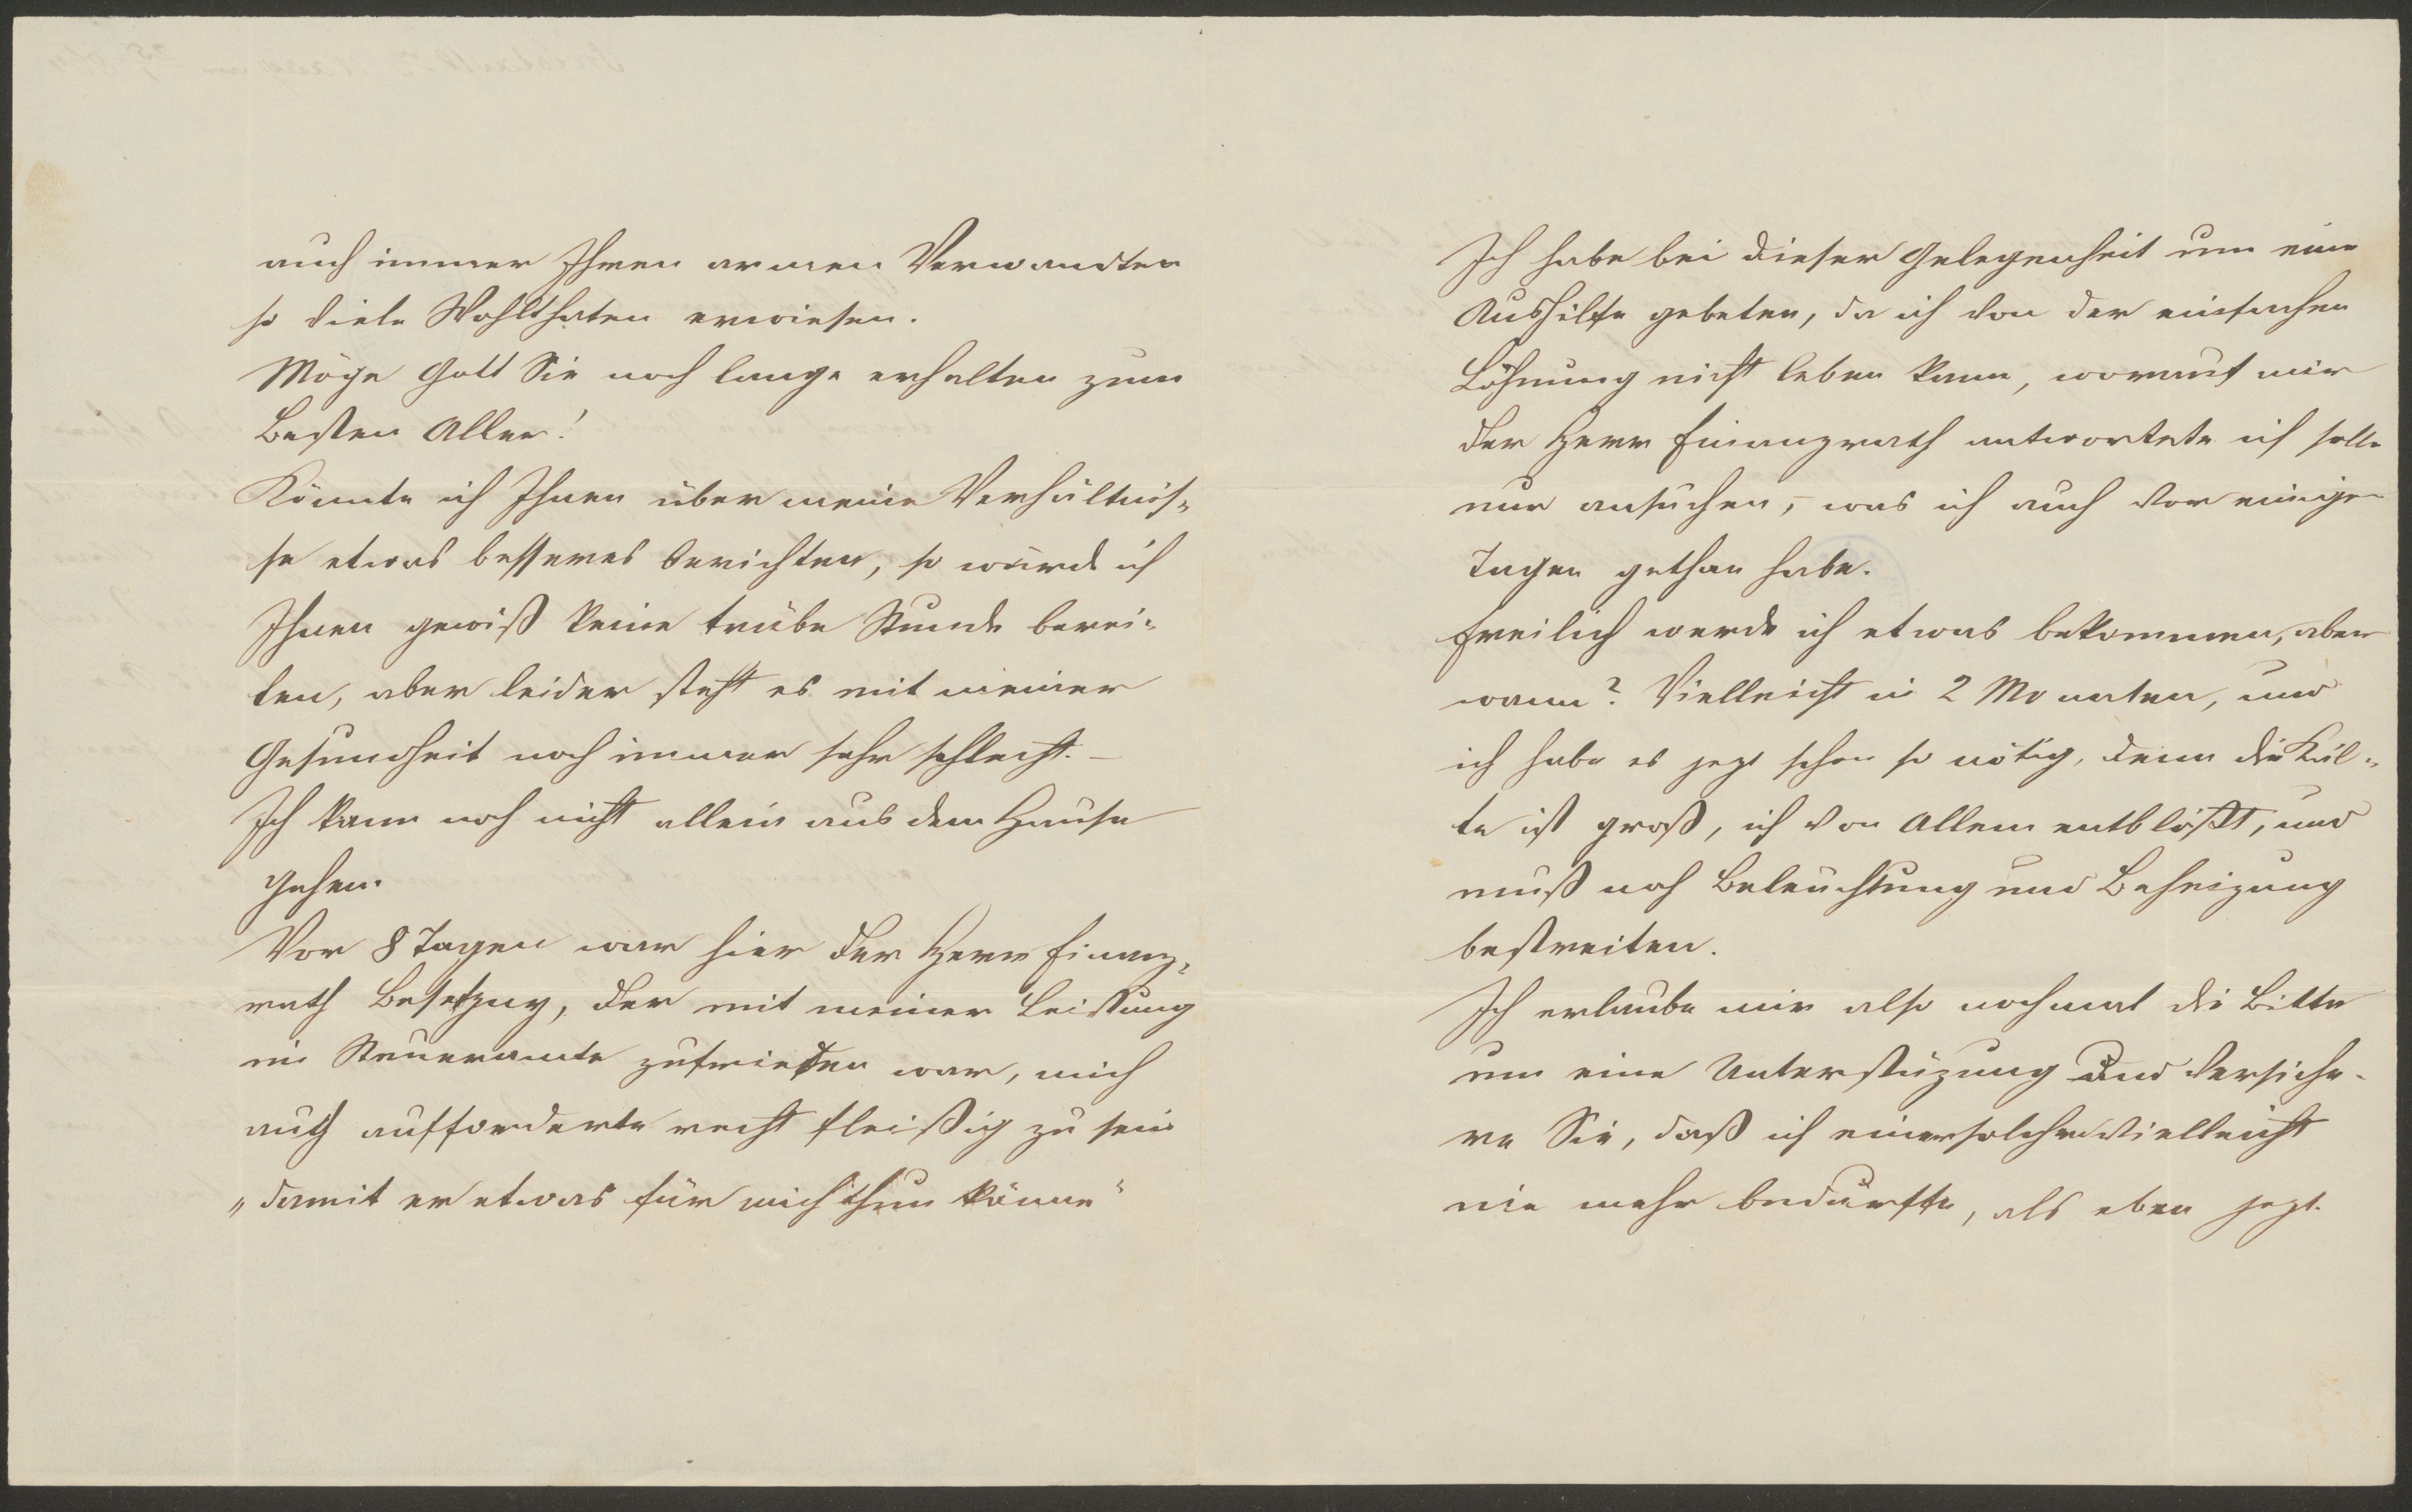 auch immer Ihren armen Verwandten
so viele Wohlthaten erwiesen.
Möge Gott Sie noch lange erhalten zum
Besten Aller!
Könnte ich Ihnen über meine Verhältnis-
se etwas besseres berichten, so würde ich
Ihnen gewiß keine trübe Stunde berei-
ten, aber leider steht es mit meiner
Gesundheit noch immer sehr schlecht. –
Ich kann noch nicht allein aus dem Hause
gehen.
Vor 8 Tagen war hier der Herr Finanz-
rath, der mit meiner Leistung
im Steueramte zufrieden war, mich
auch aufforderte recht fleißig zu sein
„damit er etwas für mich thun könne“
Ich habe bei dieser Gelegenheit um eine
Aushilfe gebeten, da ich von der einfachen
Löhnung nicht leben kann, worauf mir
der Herr Finanzrath antwortete ich solle
nur ansuchen, was ich auch vor einigen
Tagen gethan habe.
Freilich werde ich etwas bekommen, aber
wann? Vielleicht in 2 Monaten, und
ich habe es jezt schon so nötig, denn die Käl-
te ist groß, ich von Allem entblößt, und
muß noch Beleuchtung und Beheizung
bestreiten.
Ich erlaube mir also nochmal die Bitte
um eine Unterstüzung und versiche-
re Sie, daß ich einer solchen vielleicht
nie mehr bedurfte, als eben jezt.